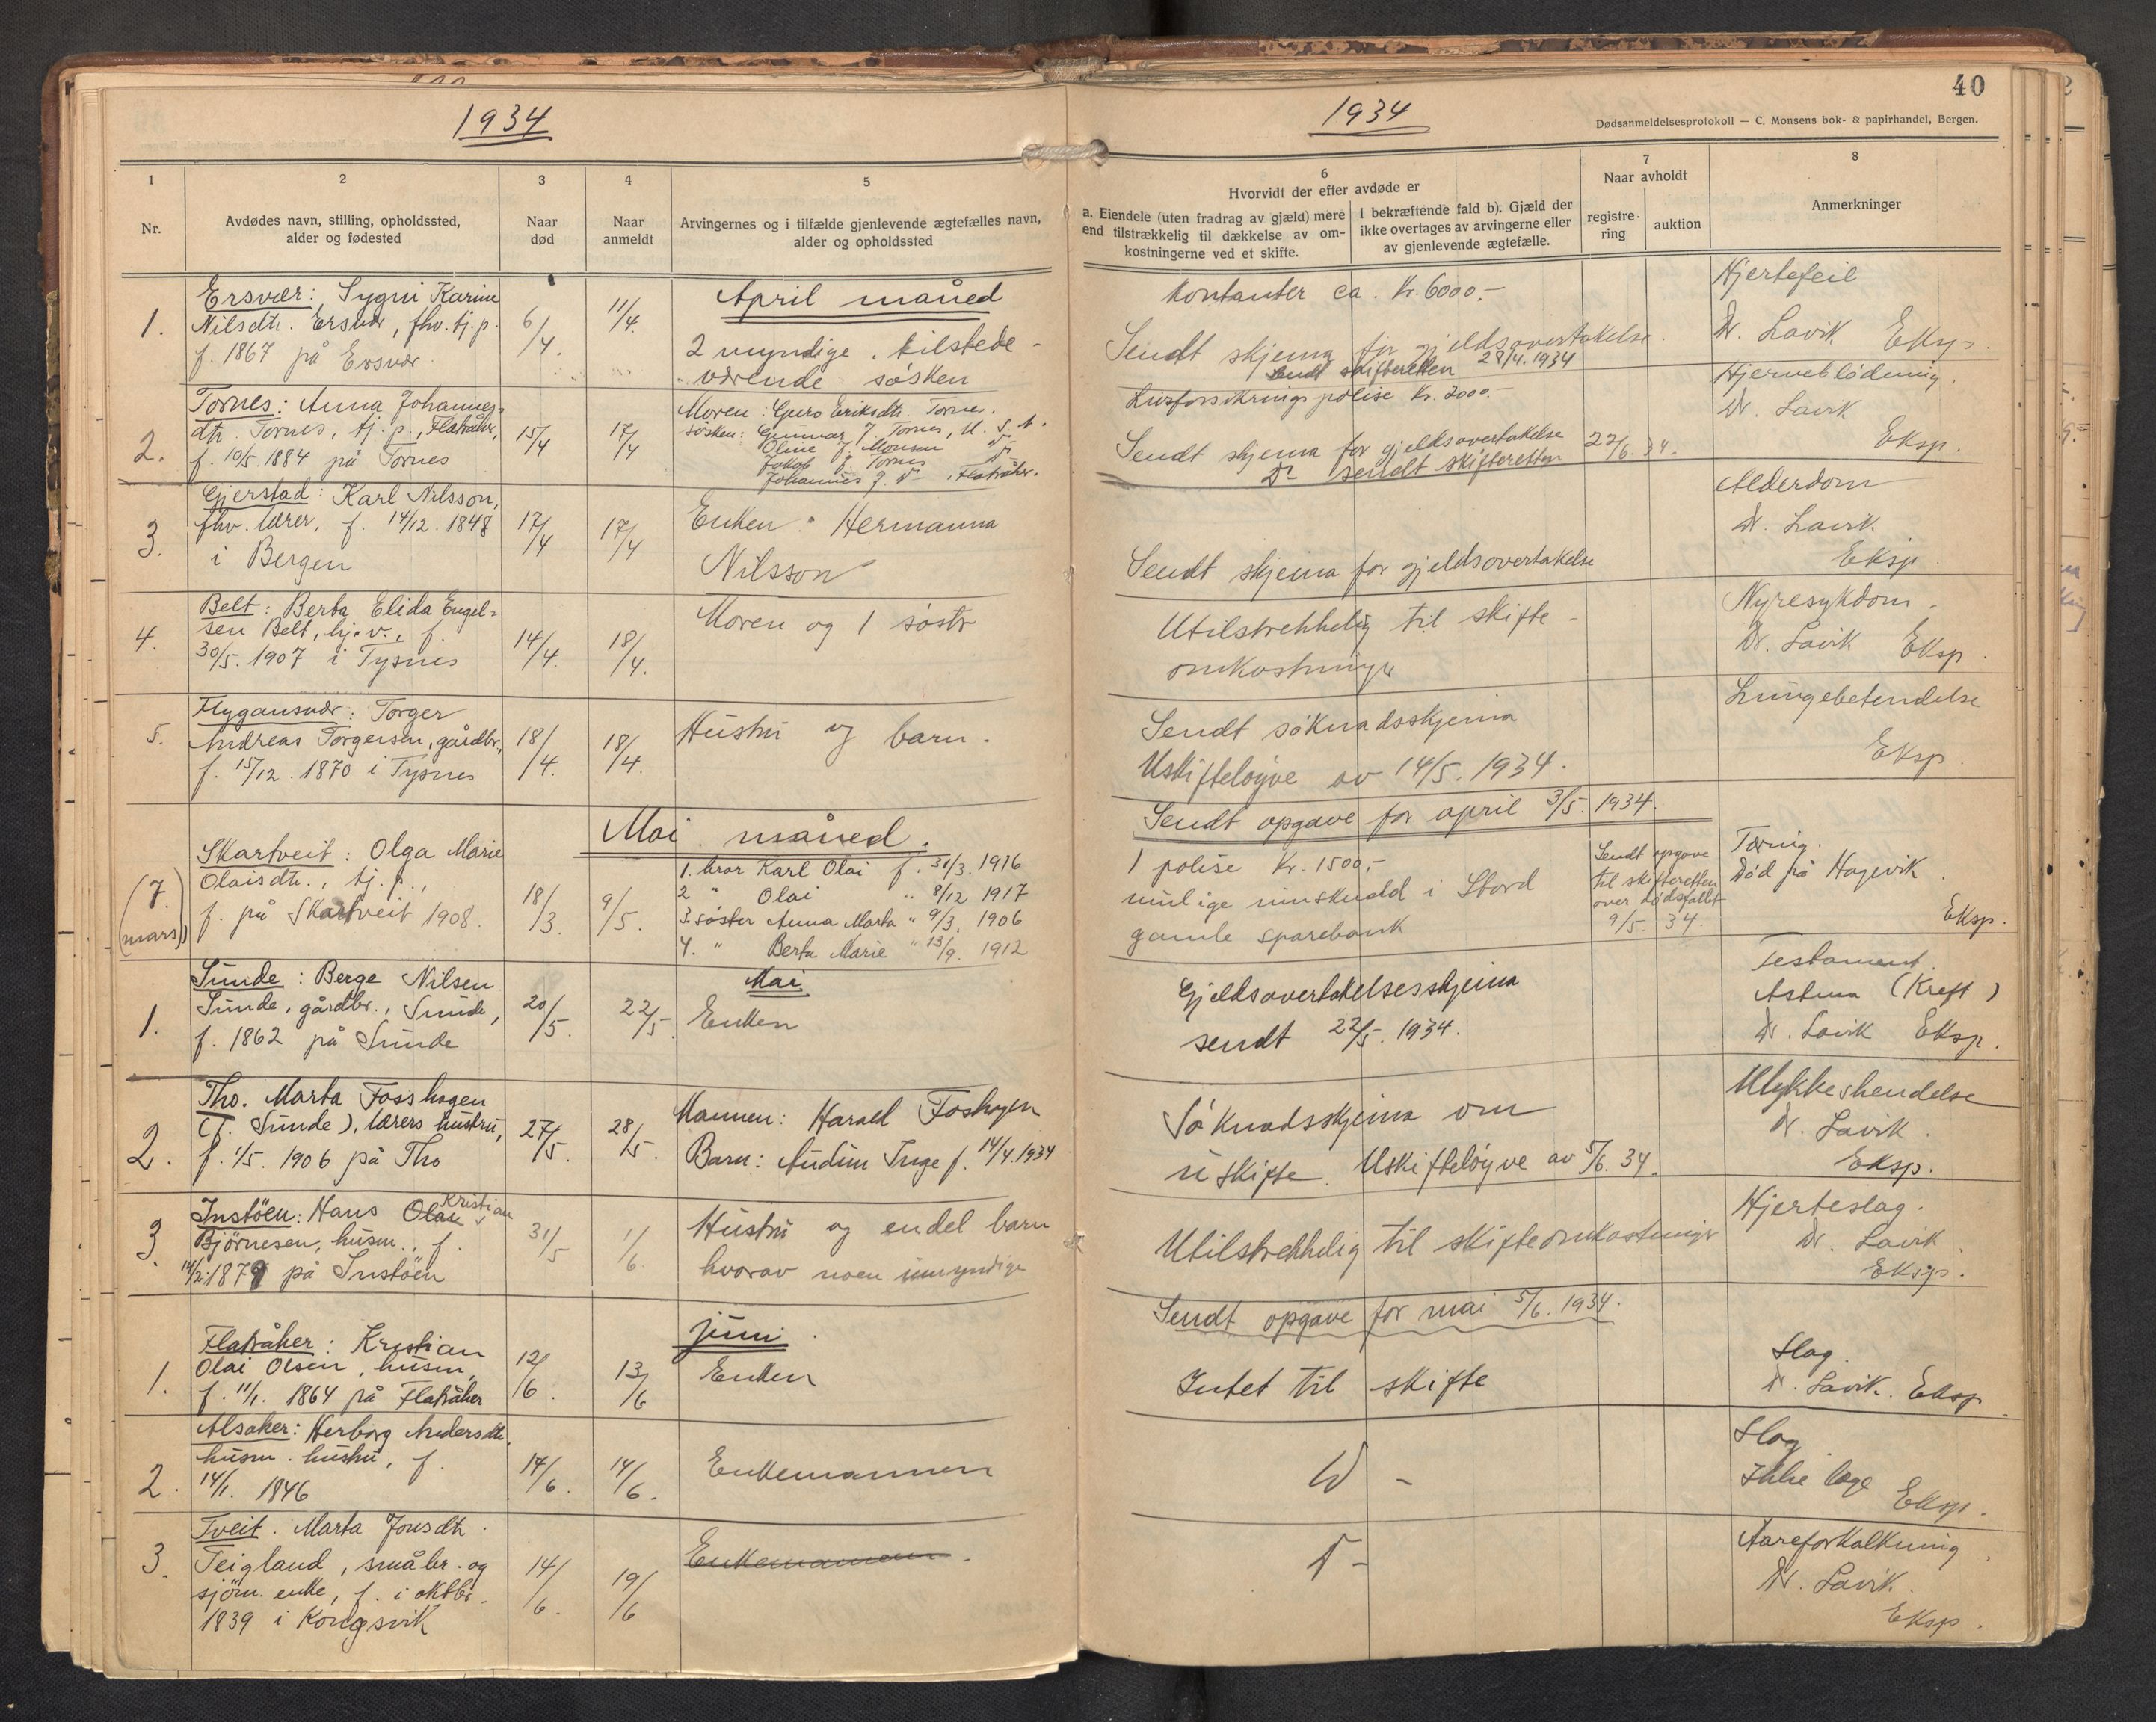 1934
1
2
3
4
5
Nr.
Avdødes navn, stilling, opholdssted,
alder og fødested
Naar
død
Naar
anmeldt
Arvingernes og i tilfælde gjenlevende ægtefælles navn,
alder og opholdssted
April måned
1.
Ersvær: Sygni Karine
Nilsdtr. Ersvær, fhv. tj.p.
f. 1867 på Ersvær.
6/4.
11/4.
2 myndige tilstede-
værende søsken
2.
Tornes: Anna Johannes-
dtr. Tornes, tj.p., Flatråker,
f. 10/5. 1884 på Tornes
15/4
17/4
Moren: Guro Eriksdtr. Tornes.
søsken: Gunnar J. Tornes, U.S.A.
Oline J. Monsen Do
Jakob J. Tornes Do
Johannes J. Do, Flatråker.
3.
Gjerstad: Karl Nilsson,
fhv. lærer, f. 14/12. 1848
i Bergen
17/4
17/4
Enken: Hermanna
Nilsson
4.
Belt: Berta Elida Engel-
sen Belt, hj.v., f.
30/5. 1907 i Tysnes
14/4.
18/4.
Moren og 1 søster
5.
Flygansvær: Torger
Andreas Torgersen, gårdbr.,
f. 15/12. 1870 i Tysnes
18/4.
18/4.
Hustru og barn.
Mai måned.
(7. mars)
Skartveit: Olga Marie
Olaisdtr., tj.p.,
f. på Skartveit 1908.
18/3.
9/5.
1. bror Karl Olai f. 31/3. 1916
2 " Olai " 8/12 1917
3. søster Anna Marta " 9/3. 1906
4. " Berta Marie " 13/9. 1912
Mai
1.
Sunde: Berge Nilsen
Sunde, gårdbr., Sunde,
f. 1862 på Sunde
20/5.
22/5.
Enken
2.
Tho. Marta Fosshagen
(f. Sunde), lærers hustru,
f. 1/5. 1906 på Tho
27/5.
28/5.
Mannen: Harald Foshagen
Barn: Audun Inge f. 14/4. 1934
3
Instöen: Hans Olai Kristian
Bjørnesen, husm., f.
14/2. 1879 på Instöen
31/5
1/6.
Hustru og endel barn
hvorav noen umyndige
juni.
1.
Flatråker: Kristian
Olai Olsen, husm.,
f. 11/1. 1864 på Flatråker
12/6.
13/6
Enken
2.
Alsaker: Herborg Andersdtr.
husm. hustru, f.
14/1. 1846
14/6.
14/6.
Enkemannen
3.
Tveit. Marta Jonsdtr.
Teigland, småbr. og
sjöm. enke, f. i oktbr.
1839 i Kongsvik
14/6.
19/6
Enkemannen.
1934
40
Dødsanmeldelsesprotokoll — C. Monsens bok- & papirhandel, Bergen.
6
Hvorvidt der efter avdøde er
a. Eiendele (uten fradrag av gjæld) mere
end tilstrækkelig til dækkelse av om-
kostningerne ved et skifte.
I bekræftende fald b). Gjæld der
ikke overtages av arvingerne eller
av gjenlevende ægtefælle.
7
Naar avholdt
registre-
ring
auktion
8
Anmerkninger
Kontanter ca. Kr. 6000.-
Sendt skjema for gjeldsovertakelse.
Sendt skifteretten 28/4. 1934
Hjertefeil
Dr. Lavik Eksp.
Livsforsikringspolise Kr. 2000.-
Sendt skjema for gjeldsovertakelse
Do sendt skifteretten
22/6. 34.
Hjerneblødning.
Dr. Lavik
Eksp.
Sendt skjema for gjeldsovertakelse
Alderdom
Dr. Lavik.
Eksp.
Utilstrekkelig til skifte-
omkostninger
Nyresykdom.
Dr. Lavik Eksp.
Sendt søknadsskjema
Uskifteløyve av 14/5. 1934.
Lungebetendelse
Eksp.
Sendt opgave for april 3/5. 1934.
1 polise Kr. 1500,-
mulige innskudd i Stord
gamle sparebank
Sendt opgave
til skifteretten
over dødsfallet
9/5. 34.
Tæring.
Død på Hagevik.
Eksp.
Gjeldsovertakelsesskjema
sendt 22/5. 1934.
Testament.
Astma (Kreft)
Dr. Lavik Eksp.
Søknadsskjema om
uskifte. Uskifteløyve av 5/6. 34.
Ulykkeshendelse
Dr. Lavik.
Eksp.
Utilstrekkelig til skifteomkostninger
Hjerteslag.
Dr. Lavik.
Eksp.
Sendt opgave for mai 5/6. 1934.
Intet til skifte
Slag.
Dr. Lavik. Eksp.
Do -
Slag
Ikke læge
Eksp.
Do -
Aareforkalkning.
Dr. Lavik.
Eksp.